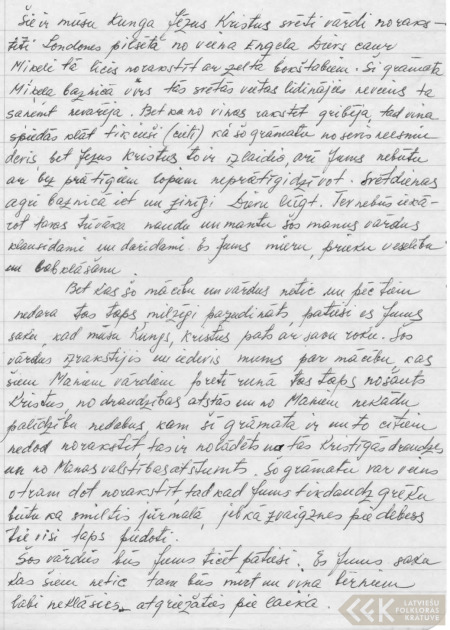 Šie ir mūsu Kunga Jēzus Kristus svēti vārdi noraks-
tīti Londones pilsētā no veina Engela Dievs caur
Mikeli tē licis norakstīt ar zelta bokštabiem. Si grāmata
Mikela baznicā virs tās svētās vietas lidinājās neviens ta
saņemt nevarēja. Bet ka no viņas rakstīt gribēja, tad viņa
spiedās klāt tik cieši (cieti) kā šo grāmatu no sevis neesmu
devis bet Jēzus Kristus to ir izlaidis, arī Jums nebūtu
ar bez prātīgām lopum neprātīgi dzīvot. Svētdienas
agri baznicā iet un sirsīgi Dievu lūgt. Tev nebūs iekā-
rot tavas tūvāka naudu un mantu šos manus vārdus
klausīdami un darīdami. Es Jums mieru, prieku veselību
un labklāšanu.
Bet kas šo mācību un vārdus netic un pēc tam
nedara tas taps milzīgi pazudināts, patiesi es Jums
saku, kad mūsu Kungs, Kristus pats ar savu roku. Šos
vārdus izrakstījis un iedevis mums par mācību, kas
šiem Maniem vārdiem pretī runā tas taps nošauts
Kristus, no draudzības atstās un no Maniem nekādu
palīdzību nedabus kam šī grāmata ir un to citiem
nedod norakstīt tas ir nolādēts no tās Kristīgās draudzes
un no Manas valstības atstumts. Šo grāmatu var viens
otram dot norakstīt, tad kad Jums tik daudz grēku
būtu ka smiltis jūrmalā, jeb kā zvaigznes pie debess
tie visi taps piedoti.
Šos vārdus būs Jums ticēt patiesi. Es Jums saku
kas šiem netic tam būs mirt un viņa bērniem
labi neklāsies atgriežaties pie laika.
LATVIEŠU
FOLKLORAS
KRĀTUVE